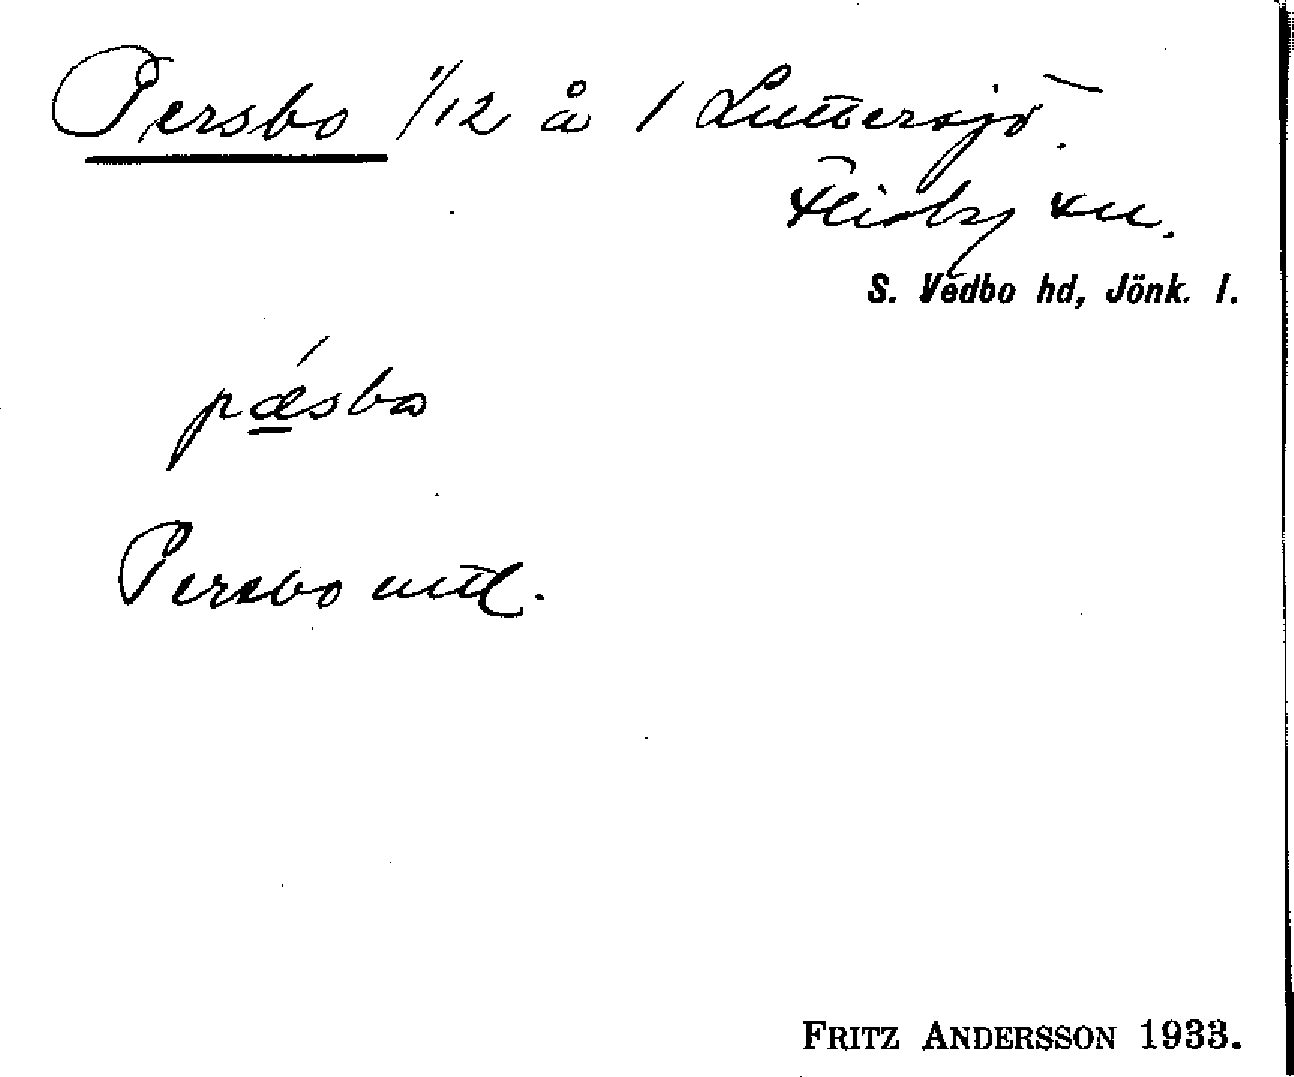 Persbo 1/12 å 1 Luttersjö.
Flisby sn.
S. Vedbo hd, Jönk. l.
pæsbo
Persbo uttl.
FRITZ ANDERSSON 1933.